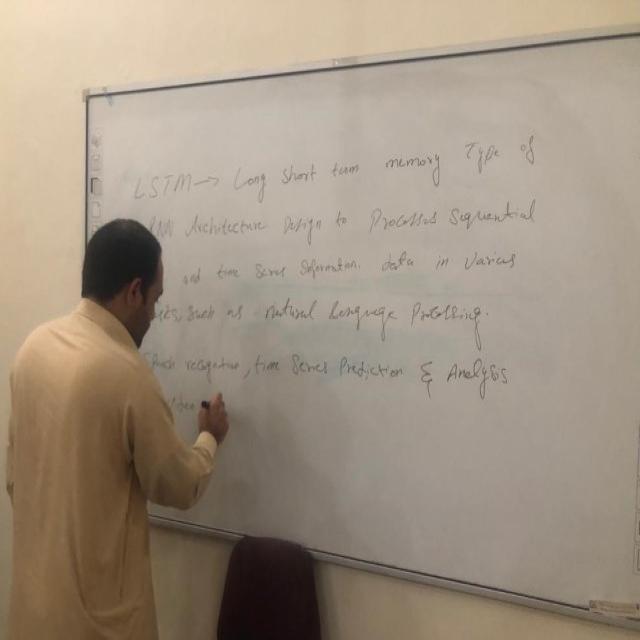 LSTM → Long Short term memory Type of
Architecture Design to Processes Sequential
and time Series Information data in various
such as natural Language Processing.
recognition, time Series Prediction & Analysis